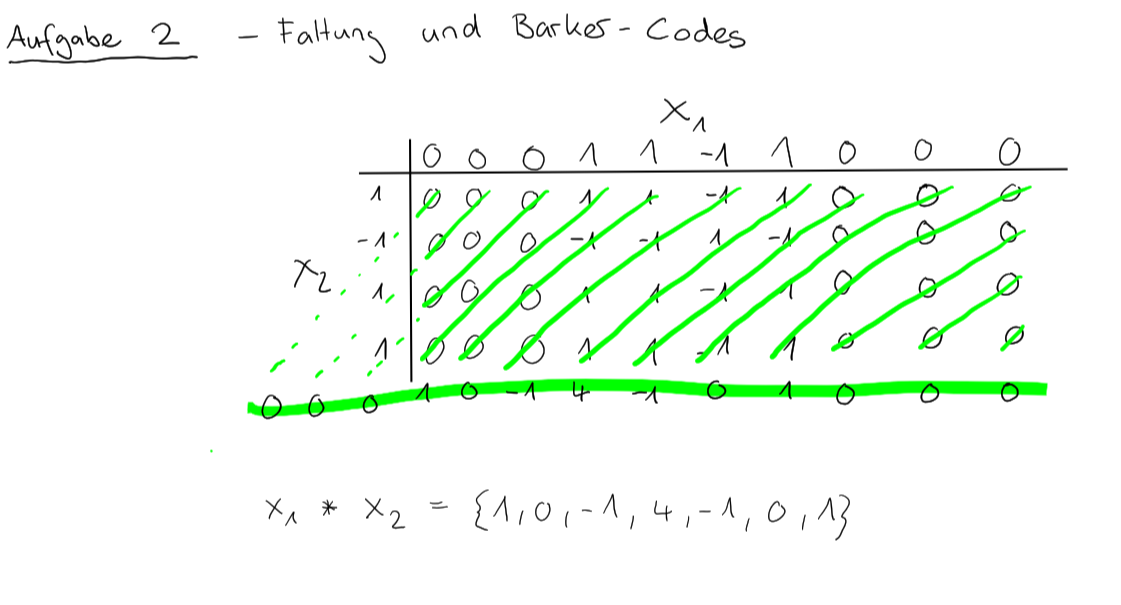 Aufgabe 2 - Faltung und Barker-Codes
X₁
0 0 0 1 1 -1 1 0 0 0
1 0 0 0 1 1 -1 1 0 0 0
-1 0 0 0 -1 -1 1 -1 0 0 0
X₂ 1 0 0 0 1 1 -1 1 0 0 0
1 0 0 0 1 1 -1 1 0 0 0
0 0 0 1 0 -1 4 -1 0 1 0 0 0
x₁ * x₂ = {1,0,-1,4,-1,0,1}